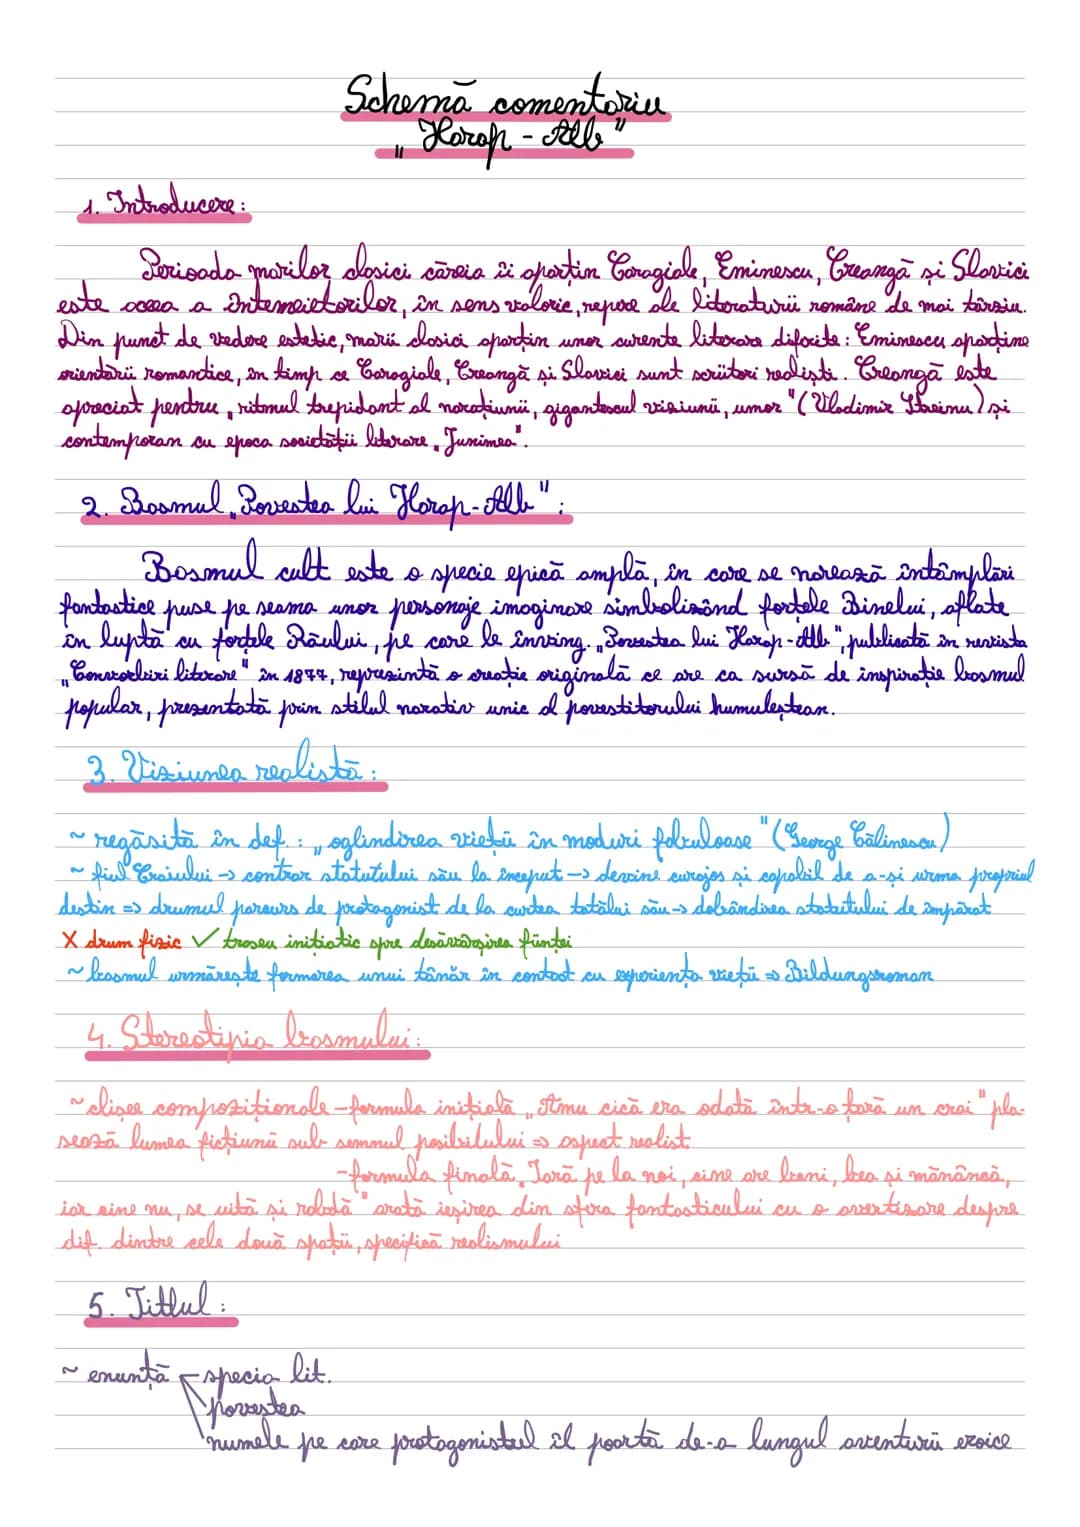 Schemă comentariu
„Harap-Alb"
1. Introducere:
Perioada marilor clasici căreia îi aparțin Caragiale, Eminescu, Creangă și Slavici
este aceea a întemeietorilor, în sens valoric, repere ale literaturii române de mai târziu.
Din punct de vedere estetic, marii clasici aparțin unor curente literare diferite: Eminescu aparține
orientării romantice, în timp ce Caragiale, Creangă și Slavici sunt scriitori realiști. Creangă este
apreciat pentru „ritmul trepidant al narațiunii, gigantescul viziunii, umor" (Vladimir Streinu) și
contemporan cu epoca societății literare „Junimea".
2. Basmul „Povestea lui Harap-Alb":
Basmul cult este o specie epică amplă, în care se narează întâmplări
fantastice puse pe seama unor personaje imaginare simbolizând forțele Binelui, aflate
în luptă cu forțele Răului, pe care le înving. „Povestea lui Harap-Alb", publicată în revista
„Convorbiri literare" în 1877, reprezintă o creație originală ce are ca sursă de inspirație basmul
popular, prezentată prin stilul narativ unic al povestitorului humuleștean.
3. Viziunea realistă:
~ regăsită în def.: „oglindirea vieții în moduri fabuloase" (George Călinescu)
~ fiul Craiului → contrar statutului său la început → devine curajos și capabil de a-și urma propriul
destin ⇒ drumul parcurs de protagonist de la curtea tatălui său → dobândirea statutului de împărat
X drum fizic ✓ traseu inițiatic spre desăvârșirea ființei
~ basmul urmărește formarea unui tânăr în contact cu experiența vieții ⇒ Bildungsroman
4. Stereotipia basmului:
~ clișee compoziționale - formula inițială „Amu cică era odată într-o țară un crai" pla-
sează lumea ficțiunii sub semnul posibilului ⇒ aspect realist
- formula finală „Iară pe la noi, cine are bani, bea și mănâncă,
iar cine nu, se uită și rabdă" arată ieșirea din sfera fantasticului cu o avertizare despre
dif. dintre cele două spații, specifică realismului
5. Titlul:
~ enunță specia lit.
povestea
numele pe care protagonistul îl poartă de-a lungul aventurii eroice